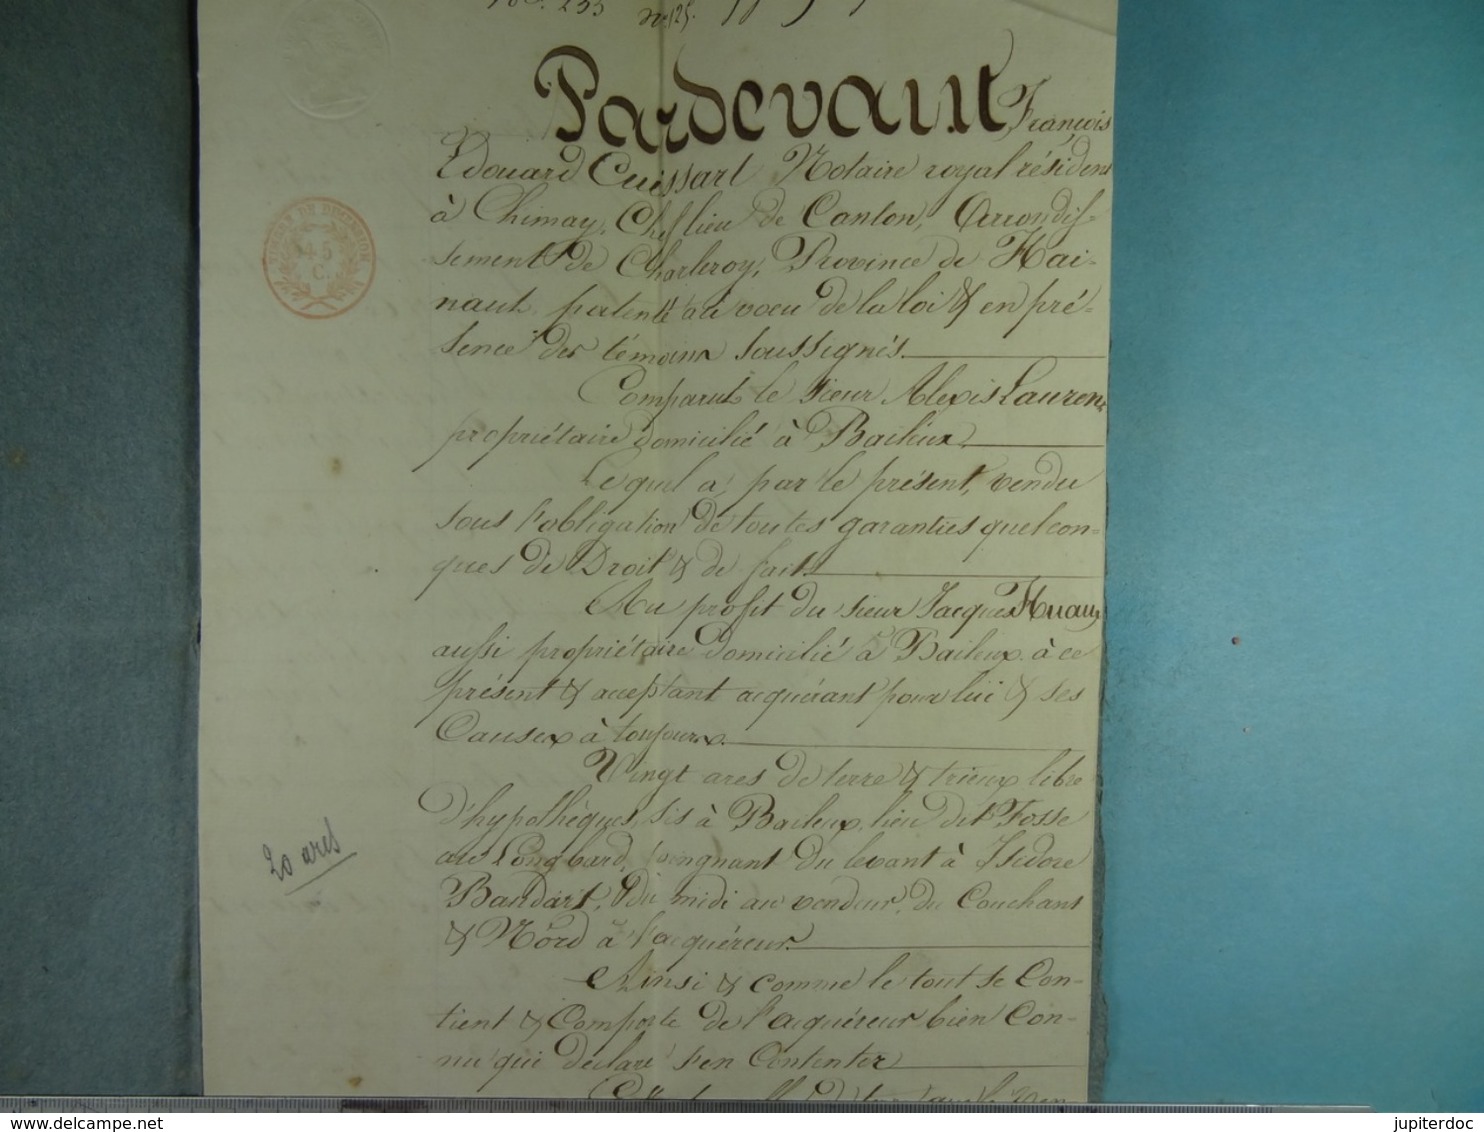 N°. 255 N. 125.
Pardevant François
Edouard Cuissart Notaire royal résident
à Chimay, Chef lieu de Canton, Arrondis-
sement de Charleroy, Province de Hai-
naut, patenté au voeu de la loi & en pré-
sence des témoins soussignés.
Comparut le sieur Alexis Laurent
propriétaire domicilié à Bailieux.
Lequel a, par le présent, vendu
sous l'obligation de toutes garanties quelcon-
ques de Droit & de fait.
Au profit du sieur Jacques Huaux
aussi propriétaire domicilié à Baileux à ce
présent & acceptant acquérant pour lui & ses
Causex à toujours.
Vingt ares de terre & trieux libre
d'hypothèques, sis à Baileux, lieu dit Fosse
au Longbard, joingnant du levant à Isidore
Baudart, du midi au vendeur, du Couchant
& Nord à l'acquéreur.
Ainsi & comme le tout se Con-
tient & Comporte de l'acquéreur bien Con-
nu qui déclare s'en Contenter
20 ares
TIMBRE DE DIMENSION
45
C.
jupiterdoc